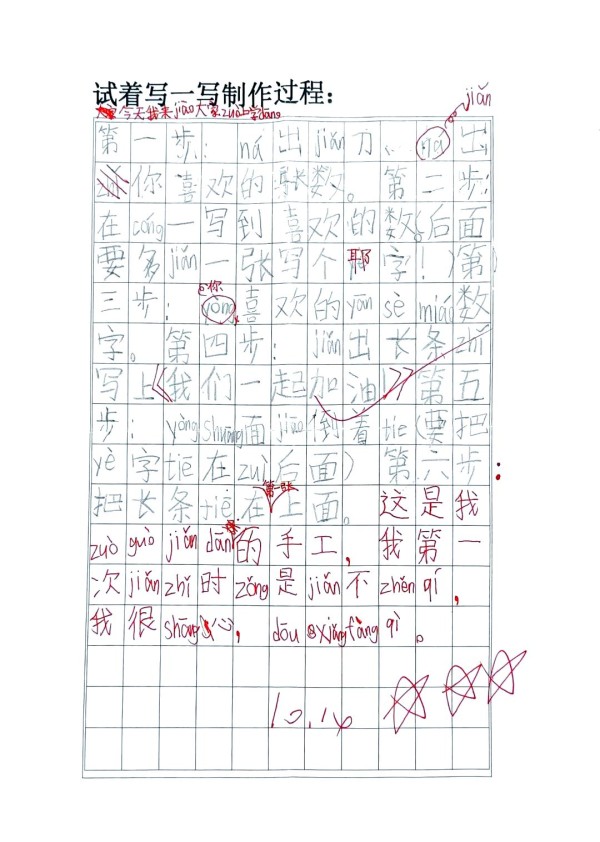 试着写一写制作过程：
今天我来jiāo大家zuò字dēng
jiǎn
第一步：ná出jiǎn刀、ná出
你喜欢的张数。第二步：
在cóng一写到喜欢的数(后面
要多jiǎn一张写个耶字！)第
三步：yòng你喜欢的yán sè miáo数
字。第四步：jiǎn出长条zhǐ
写上《我们一起加油》第五
步：yòng shuāng面jiāo倒着tiē(要把
yè字tiē在zuì后面)第六步：
把长条tiē在第一张上面。这是我
zuò guò jiǎn dān的手工，我第一
次jiǎn zhǐ时zǒng是jiǎn不zhěn qí，
我很shāng心，dōu xiǎng fàng qì。
10.14